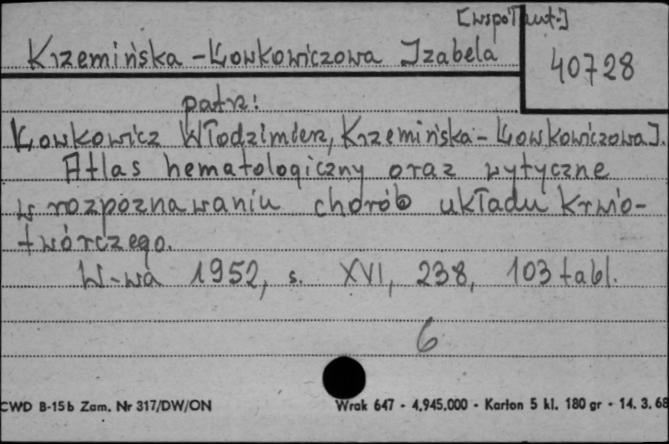 [współaut.]
Krzemińska-Ławkowiczowa Izabela
40728
patrz:
Ławkowicz Włodzimierz, Krzemińska-Ławkowiczowa I.
Atlas hematologiczny oraz wytyczne
w rozpoznawaniu chorób układu krwio-
twórczego.
W-wa 1952, s. XVI, 238, 103 tabl.
6
CWD B-15b Zam. Nr 317/DW/ON
Wrak 647 - 4.945.000 - Karton 5 kl. 180 gr - 14. 3. 68